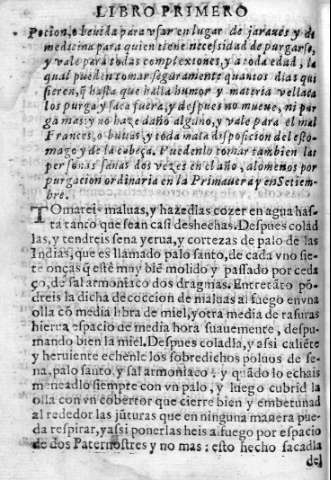 LIBRO PRIMERO
Pocion, o beuida para vsar en lugar de jaraues y de
medicina para quien tiene necessidad de purgarse,
y vale para todas complexiones, y a toda edad, la
qual pueden tomar seguramente quantos dias qui
sieren, q̃ hasta que halla humor y materia vellaca
los purga y saca fuera, y despues no mueue, ni pur
ga mas: y no haze daño alguno, y vale para el mal
Frances, o buuas, y toda mala disposicion del esto-
mago y de la cabeça. Puedenlo tomar tambien las
personas sanas dos vezes en el año, alomenos por
purgacion ordinaria en la Primauera y en Setiem-
bre.
TOmareis maluas, y hazedlas cozer en agua has-
ta tanto que sean casi deshechas. Despues colad
las, y tendreis sena yerua, y cortezas de palo de las
Indias, que es llamado palo santo, de cada vno sie-
te onças q̃ estè muy biẽ molido y passado por ceda
ço, de sal armoniaco dos dragmas. Entretãto põ-
dreis la dicha decoccion de maluas al fuego en vna
olla cõ media libra de miel, y otra media de rasuras
hierua espacio de media hora suauemente, despu-
mando bien la miel. Despues coladla, y assi caliẽte
y heruiente echenle los sobredichos poluos de se-
na, palo santo, y sal armoniaco: y quãdo lo echais
meneadlo siempre con vn palo, y luego cubrid la
olla con vn cobertor que cierre bien y embetunad
al rededor las jũturas que en ninguna manera pue-
da respirar, y assi ponerlas heis a fuego por espacio
de dos Paternostres y no mas: esto hecho sacadla
del